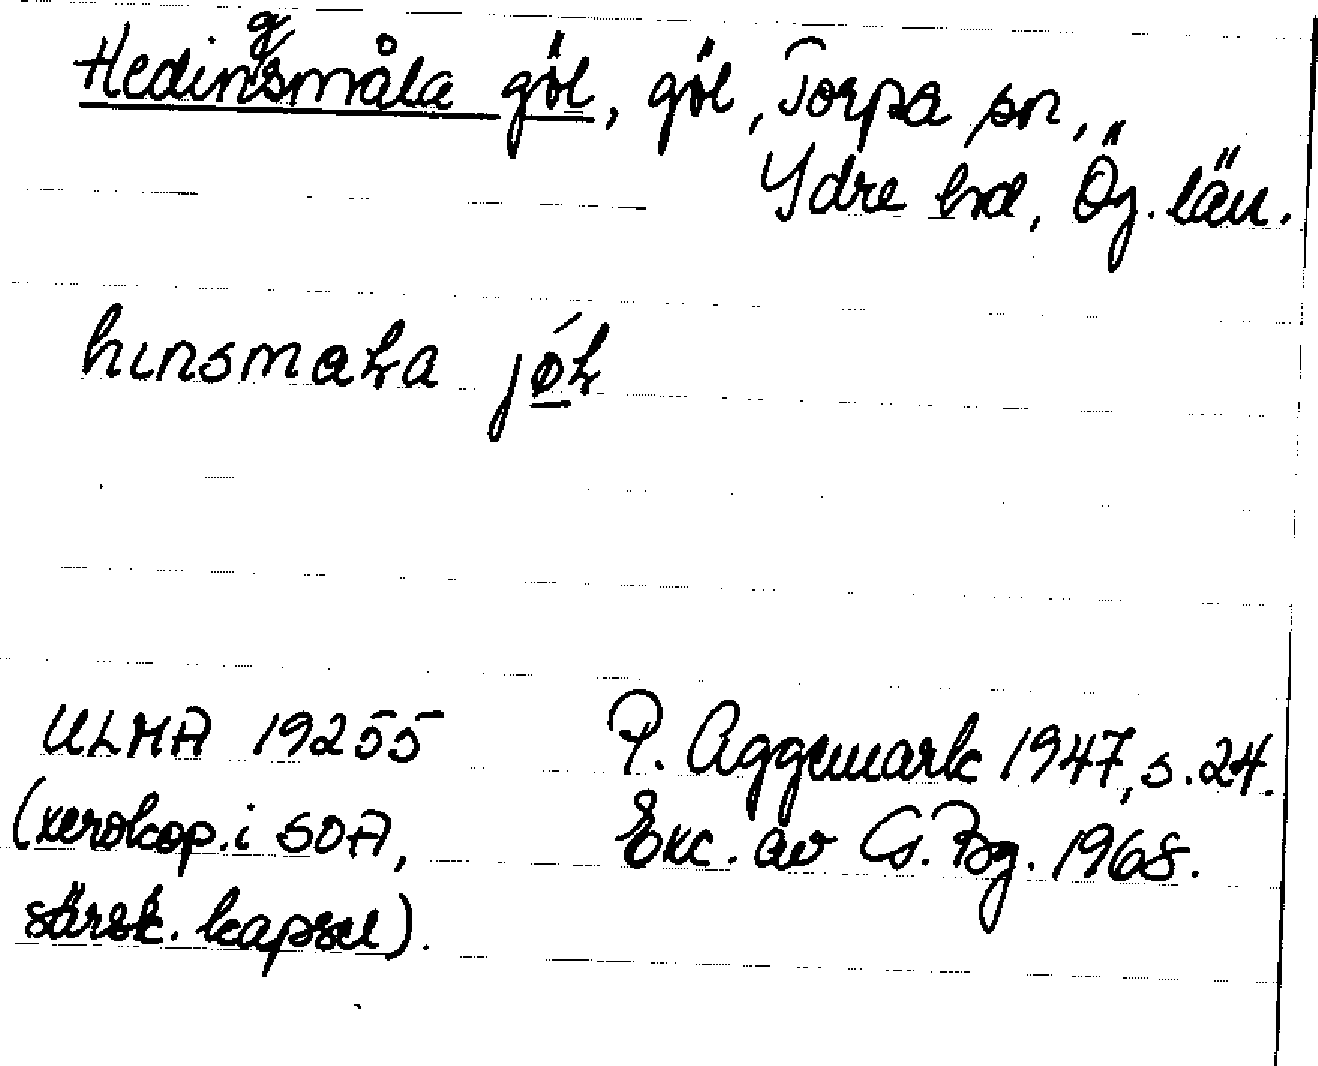 Hedingsmåla göl, göl, Torpa sn,
Ydre hd, Ög. län.
hınsmaƚa jǿƚ
ULMA 19255
(xerokop. i SOA,
särsk. kapsel).
P. Aggemark 1947, s. 24.
Exc. av G. Bg. 1968.